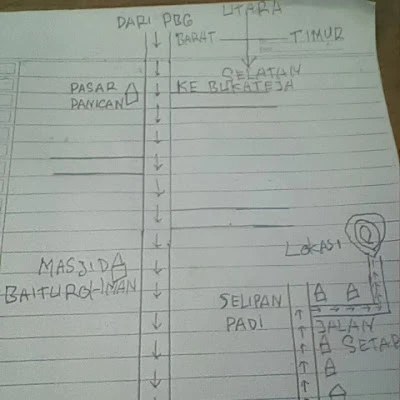 DARI PBG
UTARA
BARAT
TIMUR
SELATAN
PASAR
PANICAN
KE BUKATEJA
LOKASI
MASJID
BAITUROH-IMAN
SELIPAN
PADI
JALAN
SETAP